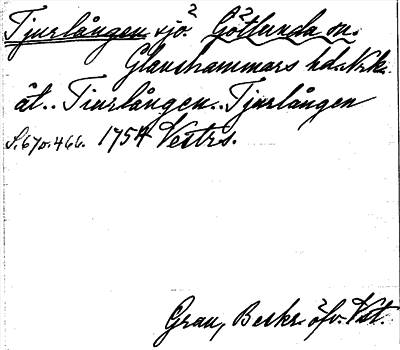 Tjurlången sjö? Götlunda sn?
Glanshammars hd. Nrk.
ät.. Tiurlången.. Tjurlången
S. 670. 466. 1754 Vestrs.
Grau, Beskr. öfv. Vst.